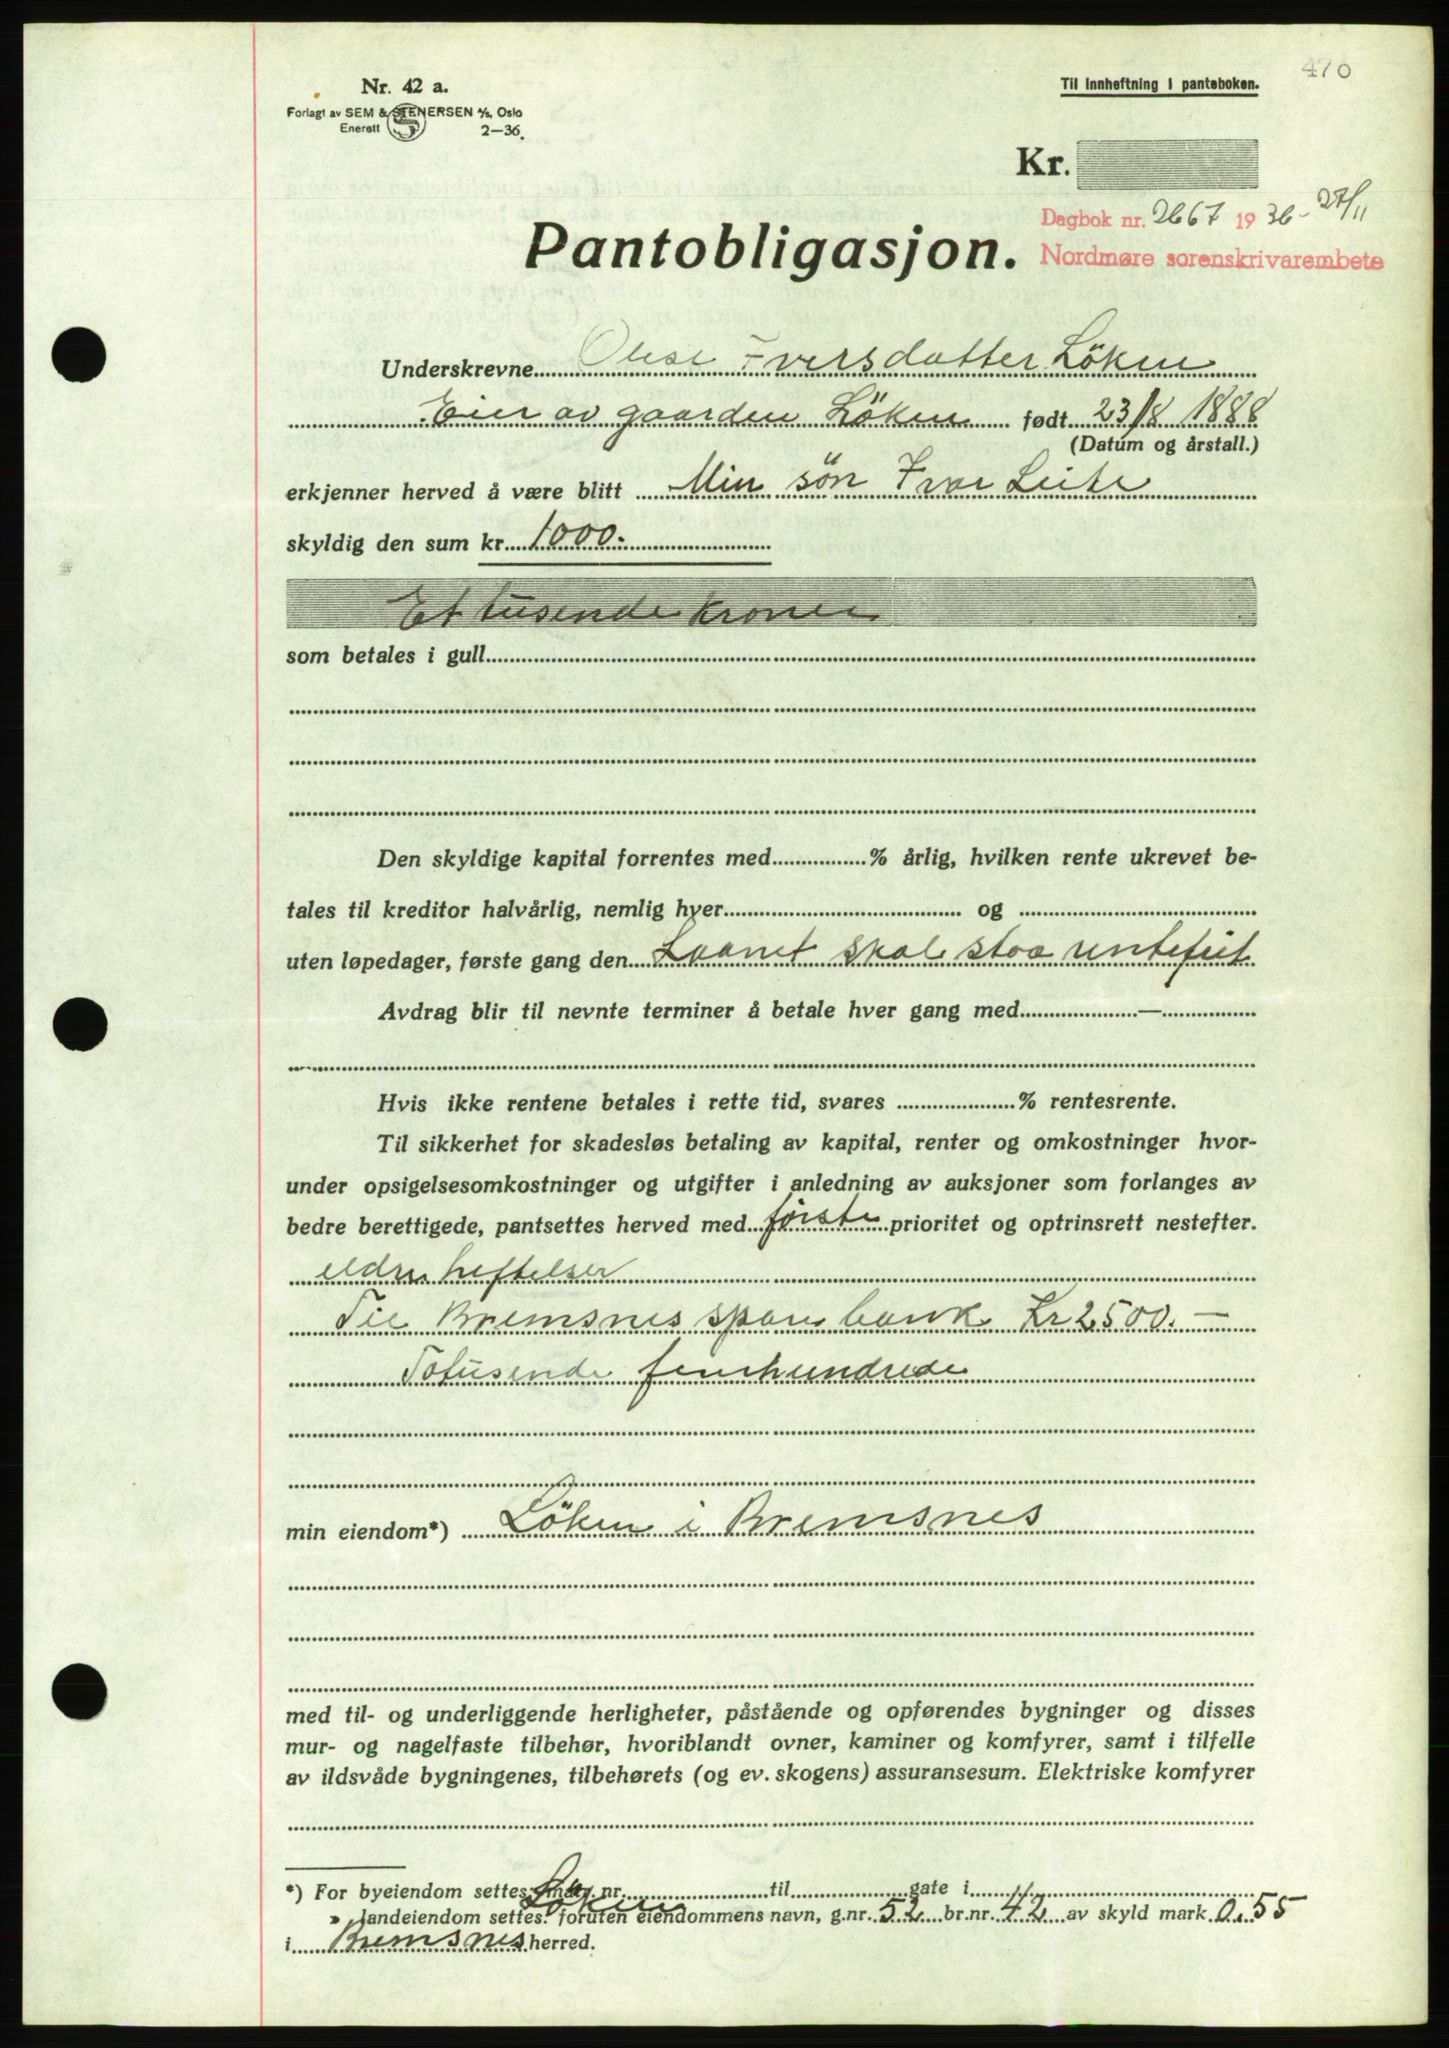 476
Nr. 42 a.
Til innheftning i panteboken.
Forlagt av SEM & STENERSEN A/S, Oslo
Enerett
2—36.
Kr.
Dagbok nr. 2667 1936- 27/11
Nordmøre sorenskrivarembete
Pantobligasjon.
Underskrevne Iversdatter Löken
Eier av gaarden Löken født 23/8 1888
(Datum og årstall.)
erkjenner herved å være blitt Min sön Ivar Leite
skyldig den sum kr. 1000.
Et tusende kroner
som betales i gull
Den skyldige kapital forrentes med % årlig, hvilken rente ukrevet be-
tales til kreditor halvårlig, nemlig hver og
uten løpedager, første gang den Laanet skal staa rentefrit
Avdrag blir til nevnte terminer å betale hver gang med —
Hvis ikke rentene betales i rette tid, svares % rentesrente.
Til sikkerhet for skadesløs betaling av kapital, renter og omkostninger hvor-
under opsigelsesomkostninger og utgifter i anledning av auksjoner som forlanges av
bedre berettigede, pantsettes herved med første prioritet og optrinsrett nestefter.
eldre heftelser
Til Bremsnes sparebank Kr 2500.—
Totusende femhundrede
min eiendom*) Löken i Bremsnes
med til- og underliggende herligheter, påstående og opførendes bygninger og disses
mur- og nagelfaste tilbehør, hvoriblandt ovner, kaminer og komfyrer, samt i tilfelle
av ildsvåde bygningenes, tilbehørets (og ev. skogens) assuransesum. Elektriske komfyrer
*) For byeiendom settes: matr. nr. til gate i
Löken
» landeiendom settes: foruten eiendommens navn, g.nr. 52 br.nr. 42 av skyld mark 0.55
i Bremsnes herred.